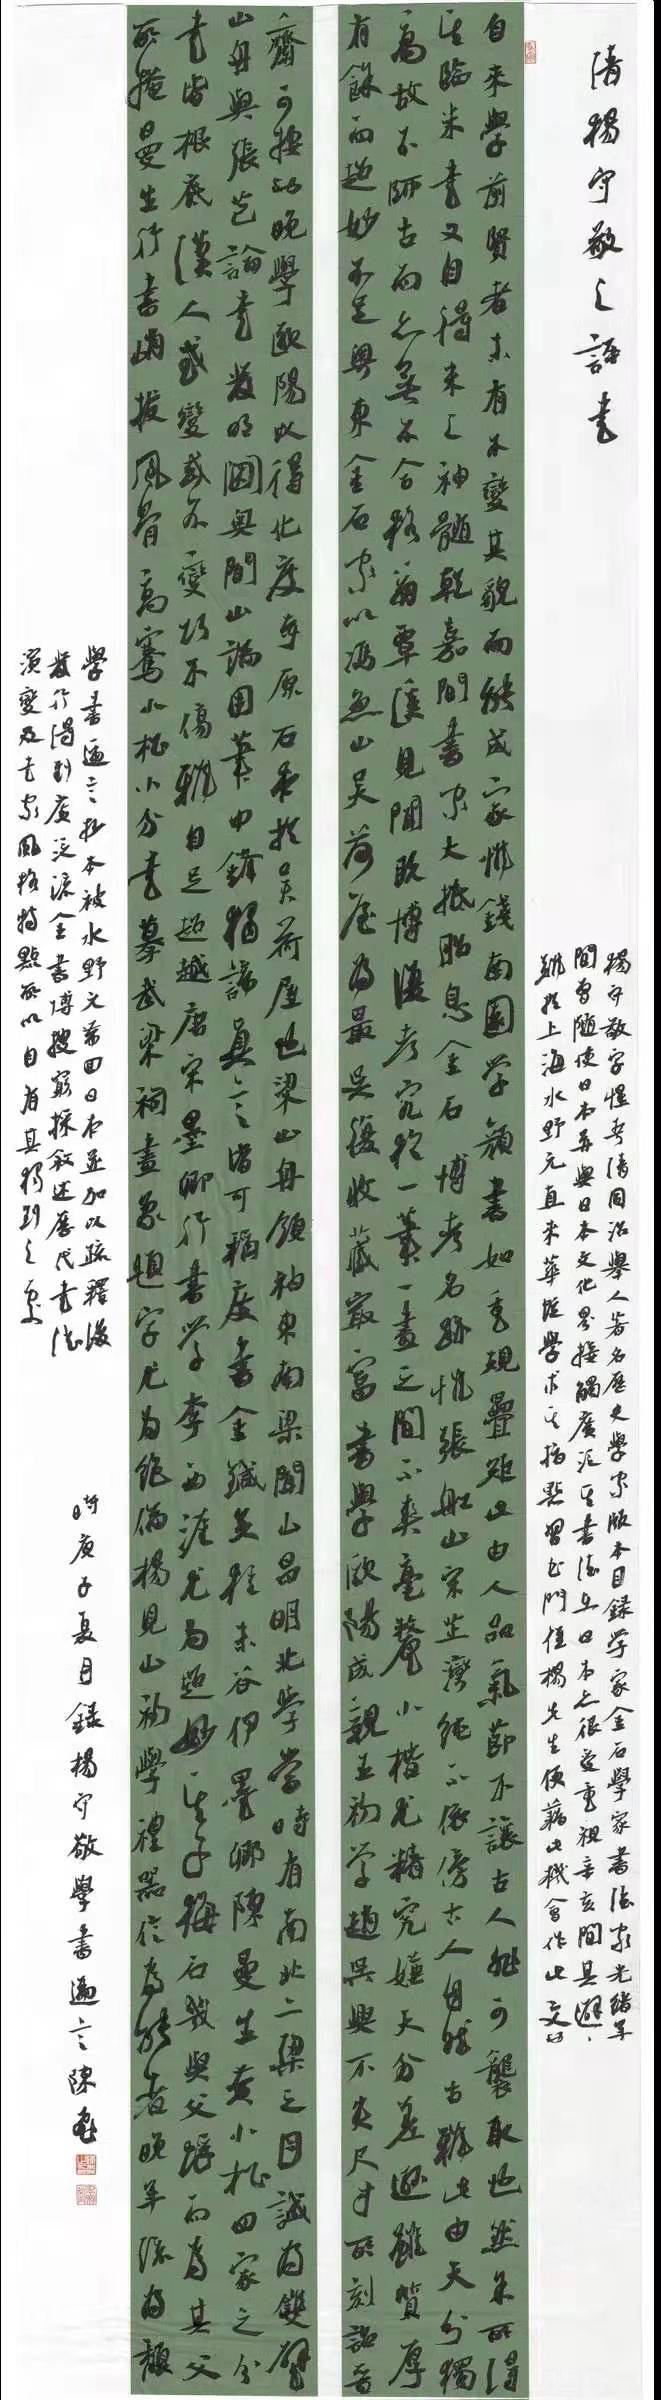 清楊守敬之語書
楊守敬字惺吾清同治舉人著名歷史學家版本目錄学家金石學家書法家光緒年
間曾隨使日本并與日本文化界接觸廣泛其書法在日本亦很受重視辛亥間其避
難於上海水野元直來華從學求其指點習書門徑楊先生便藉此機會作此文以
自來學前賢者未有不變其貌而能成家惟錢南園学顏書如重規疊矩此由人品氣節不讓古人非可襲取也然其所得
其臨米書又自得米之神髓乾嘉間書家大抵胎息金石博考名跡惟張船山宋芷灣純不依傍古人自然古雅此由天分獨
高故不師古而亦無不合格翁覃溪見聞既博復考究於一筆一畫之間不爽毫釐小楷尤精究嫌天分差遜雖質厚
有餘而超妙不足粵東金石家以馮魚山吴荷屋為最吴復收藏最富書學歐陽成親王初学趙吴興不失尺寸所刻詒晉
齋可按也晚學歐陽以得化度寺原石本於吴荷屋也梁山舟領袖東南梁聞山昌明北學當時有南北二梁之目誠為雙璧
山舟與張芑論書發明閫奧聞山論用筆中鋒猶諦真言皆可稱度書金鍼矣桂未谷伊墨卿陳曼生黄小松四家之分
書皆根底漢人或變或不變巧不傷雅自足超越唐宋墨卿行書学李西涯尤為超妙其子梅石幾與父埒而為其父
所掩曼生行書峭拔風骨高騫小松小分書摹武梁祠畫象題字尤為絶倫楊見山初學禮器信為能者晚年流為頹
學書邇言抄本被水野元直帶回日本並加以疏釋後
發行得到廣泛流全書博搜窮採敘述歷代書法
演變及書家風格特點所以自有其獨到之處
時庚子夏月錄楊守敬學書邇言陳